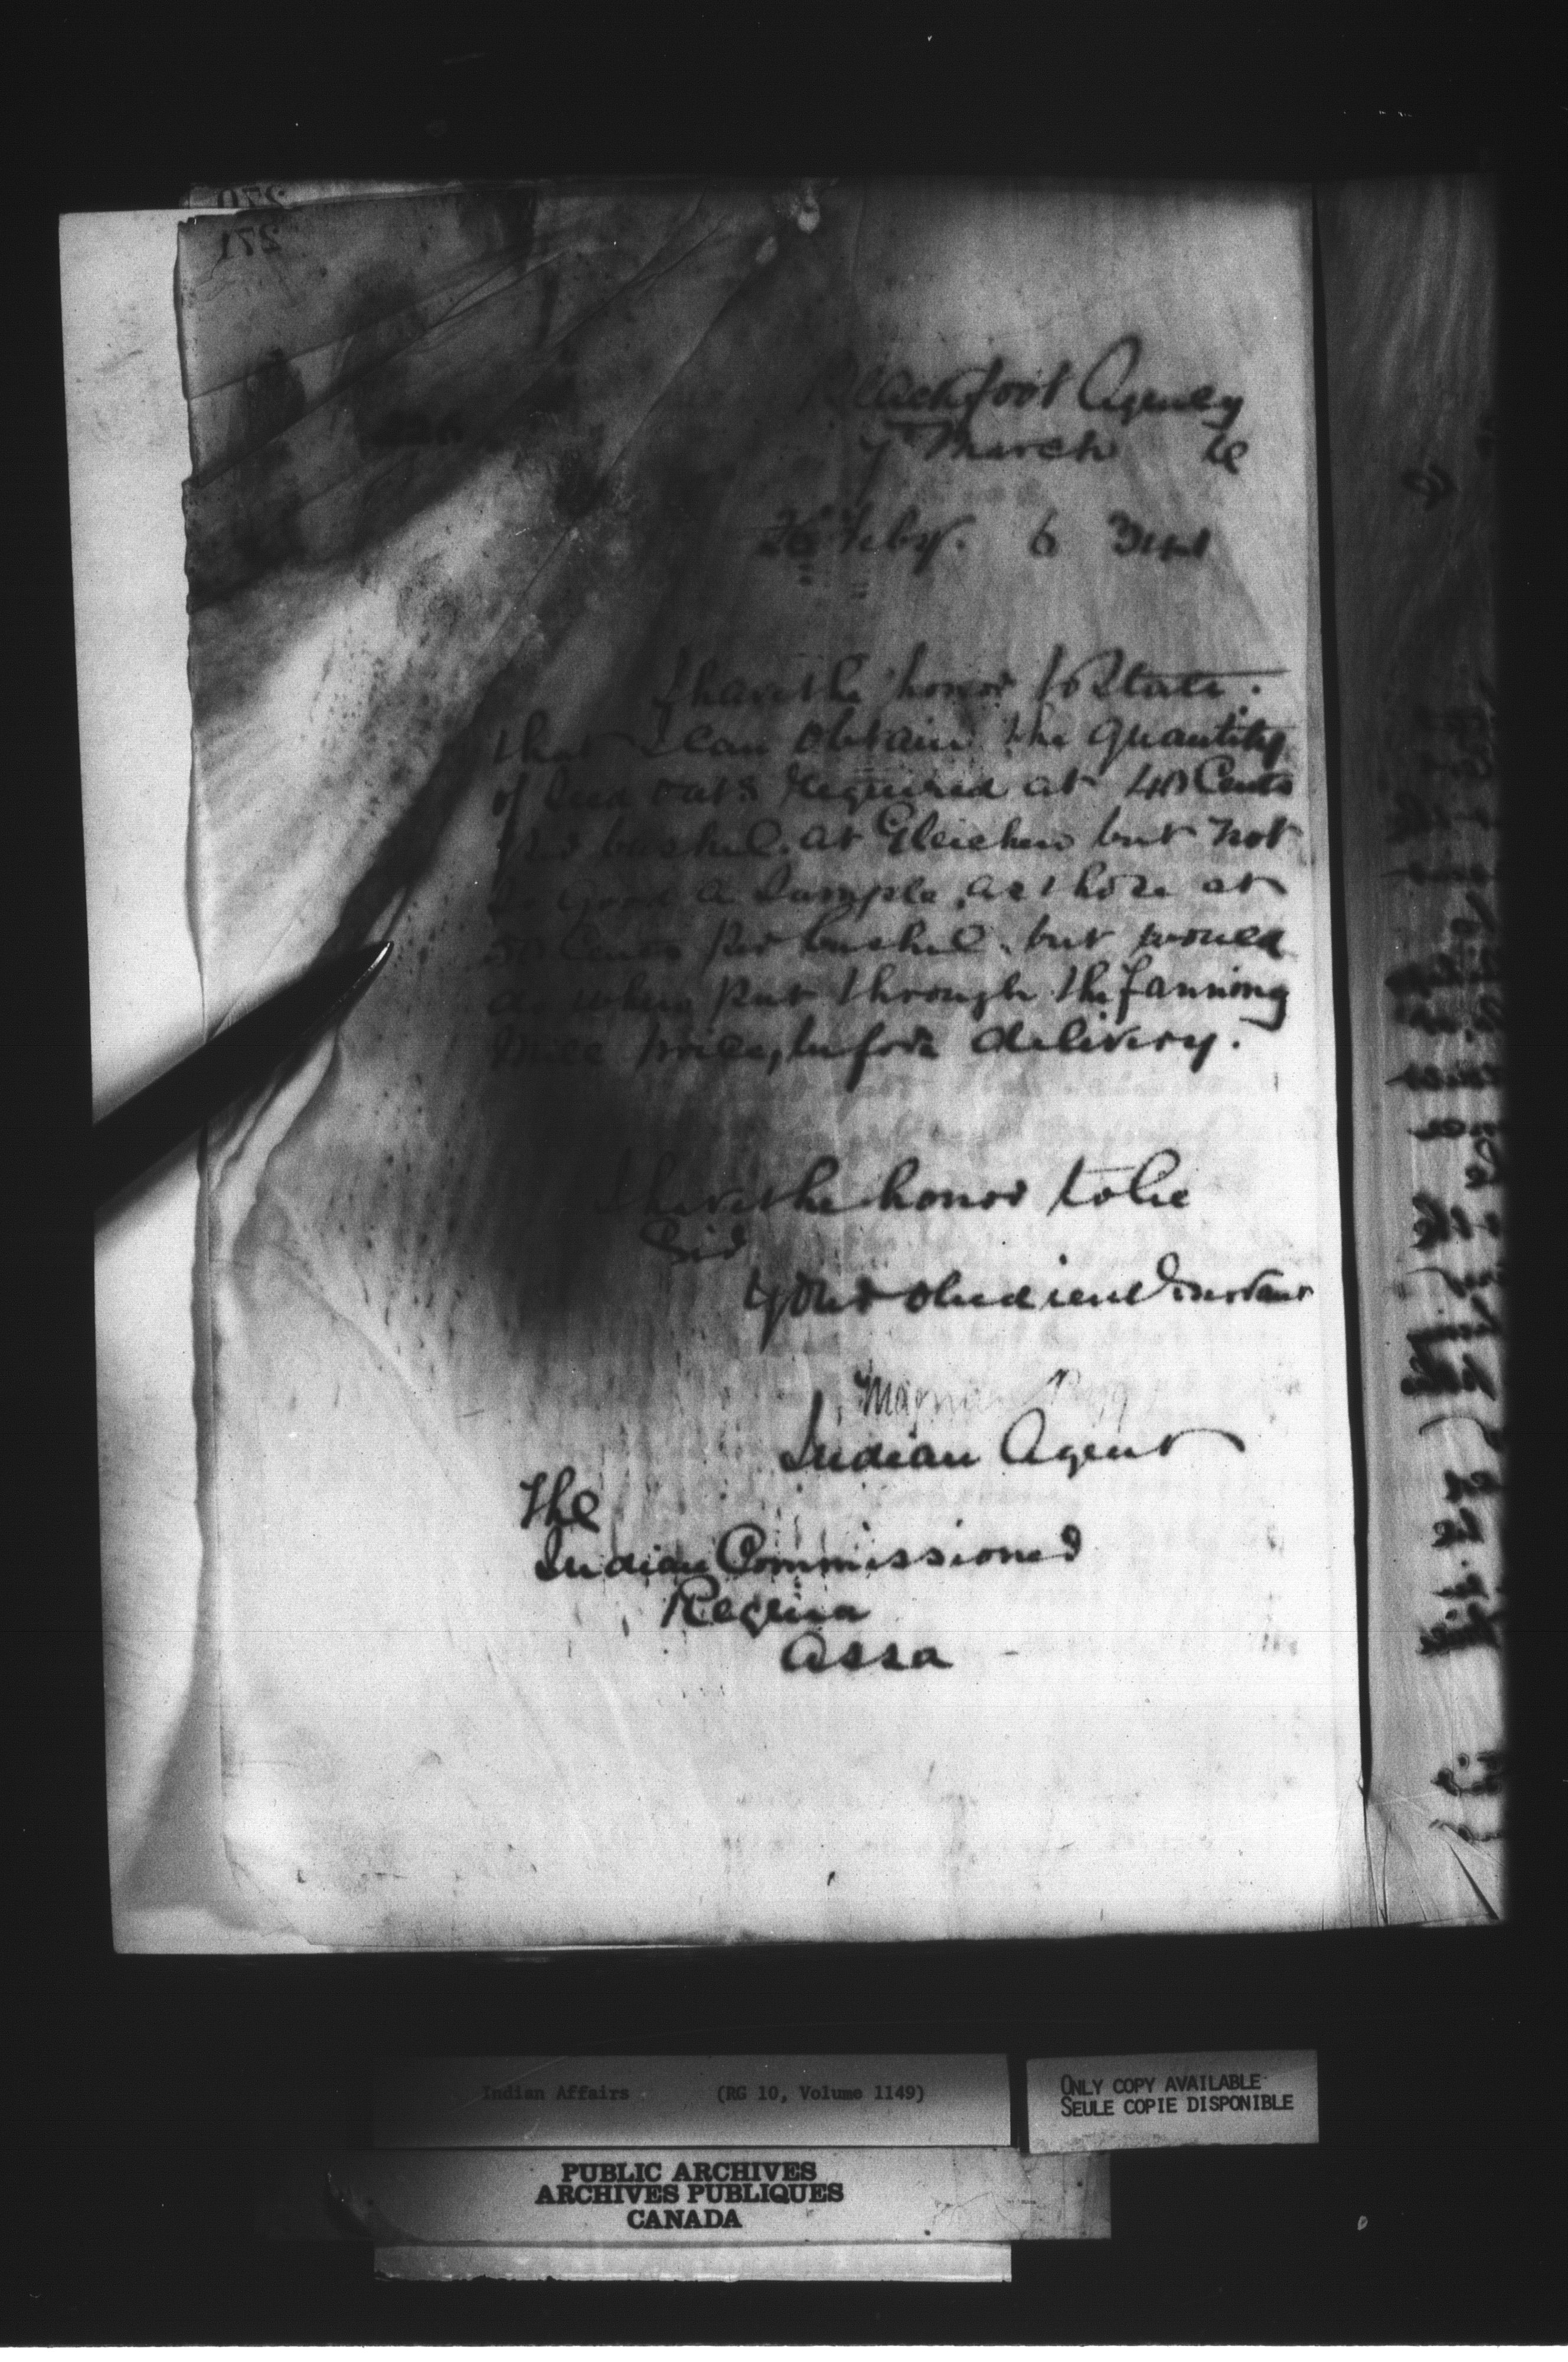 270
271
Blackfoot Agency
7th March
26 Feby. 6
I have the honor to State.
that I can obtain the quantity
of Seed oats required at 40 Cents
per bushel. at Gleichen but not
So good a Sample, as those at
50 Cents per bushel. but would
do when put through the fanning
Mill twice, before delivery.
I have the honor to be
Sir
Your obedient Servant
Magnus Begg
Indian Agent
The
Indian Commissioner
Regina
Assa
Indian Affairs (RG 10, Volume 1149)
ONLY COPY AVAILABLE
SEULE COPIE DISPONIBLE
PUBLIC ARCHIVES
ARCHIVES PUBLIQUES
CANADA